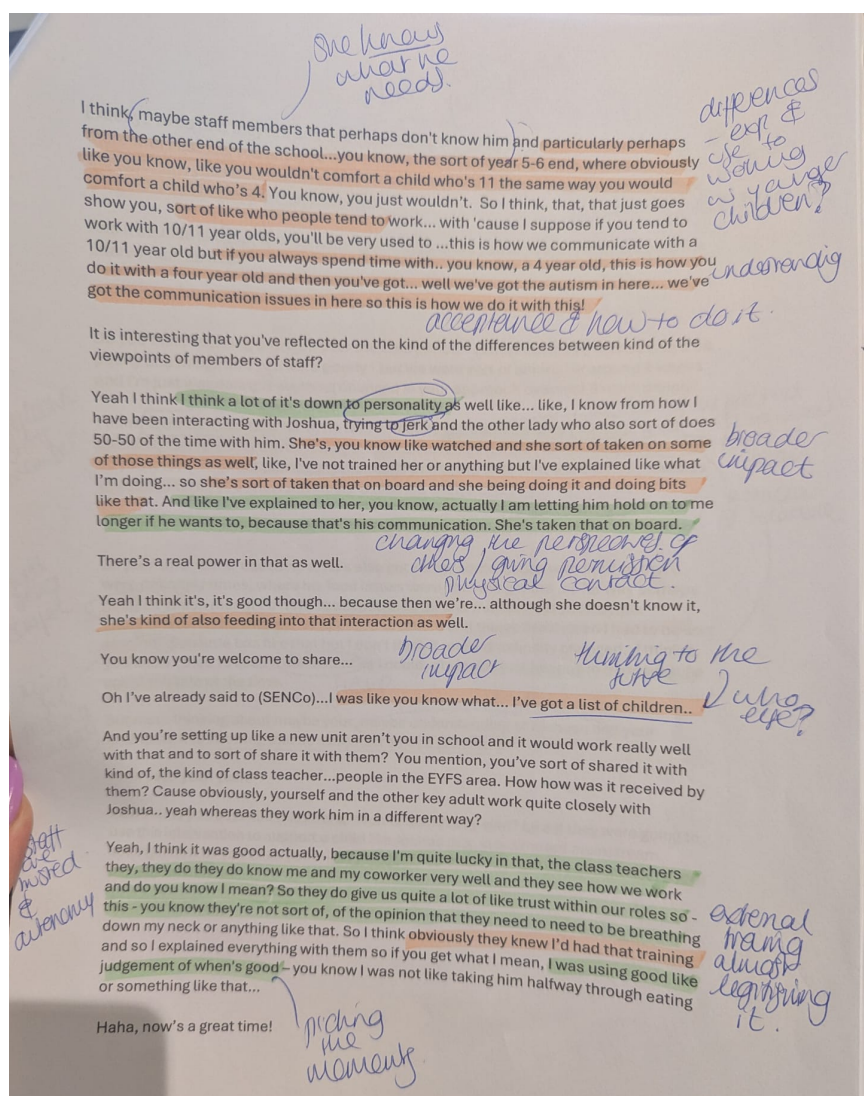 she knows
what he
needs.
I think, maybe staff members that perhaps don't know him and particularly perhaps
from the other end of the school...you know, the sort of year 5-6 end, where obviously
like you know, like you wouldn't comfort a child who's 11 the same way you would
comfort a child who's 4. You know, you just wouldn't. So I think, that, that just goes
show you, sort of like who people tend to work... with 'cause I suppose if you tend to
work with 10/11 year olds, you'll be very used to ...this is how we communicate with a
10/11 year old but if you always spend time with.. you know, a 4 year old, this is how you
do it with a four year old and then you've got... well we've got the autism in here... we've
got the communication issues in here so this is how we do it with this!
differences
- exp &
use to
working
w younger
children?
understanding
acceptance & how to do it.
It is interesting that you've reflected on the kind of the differences between kind of the
viewpoints of members of staff?
Yeah I think I think a lot of it's down to personality as well like... like, I know from how I
have been interacting with Joshua, trying to jerk and the other lady who also sort of does
50-50 of the time with him. She's, you know like watched and she sort of taken on some
of those things as well, like, I've not trained her or anything but I've explained like what
I'm doing... so she's sort of taken that on board and she being doing it and doing bits
like that. And like I've explained to her, you know, actually I am letting him hold on to me
longer if he wants to, because that's his communication. She's taken that on board.
broader
impact
changing the perspectives of
others / giving permission
physical contact.
There's a real power in that as well.
Yeah I think it's, it's good though... because then we're... although she doesn't know it,
she's kind of also feeding into that interaction as well.
You know you're welcome to share...
broader
impact
thinking to the
future
Oh I've already said to (SENCo)...I was like you know what... I've got a list of children..
who
else?
And you're setting up like a new unit aren't you in school and it would work really well
with that and to sort of share it with them? You mention, you've sort of shared it with
kind of, the kind of class teacher...people in the EYFS area. How how was it received by
them? Cause obviously, yourself and the other key adult work quite closely with
Joshua.. yeah whereas they work him in a different way?
staff
are
trusted
&
autonomy
Yeah, I think it was good actually, because I'm quite lucky in that, the class teachers
they, they do they do know me and my coworker very well and they see how we work
and do you know I mean? So they do give us quite a lot of like trust within our roles so -
this - you know they're not sort of, of the opinion that they need to need to be breathing
down my neck or anything like that. So I think obviously they knew I'd had that training
and so I explained everything with them so if you get what I mean, I was using good like
judgement of when's good – you know I was not like taking him halfway through eating
or something like that...
external
training
almost
legitimising
it.
Haha, now's a great time!
picking
the
moments